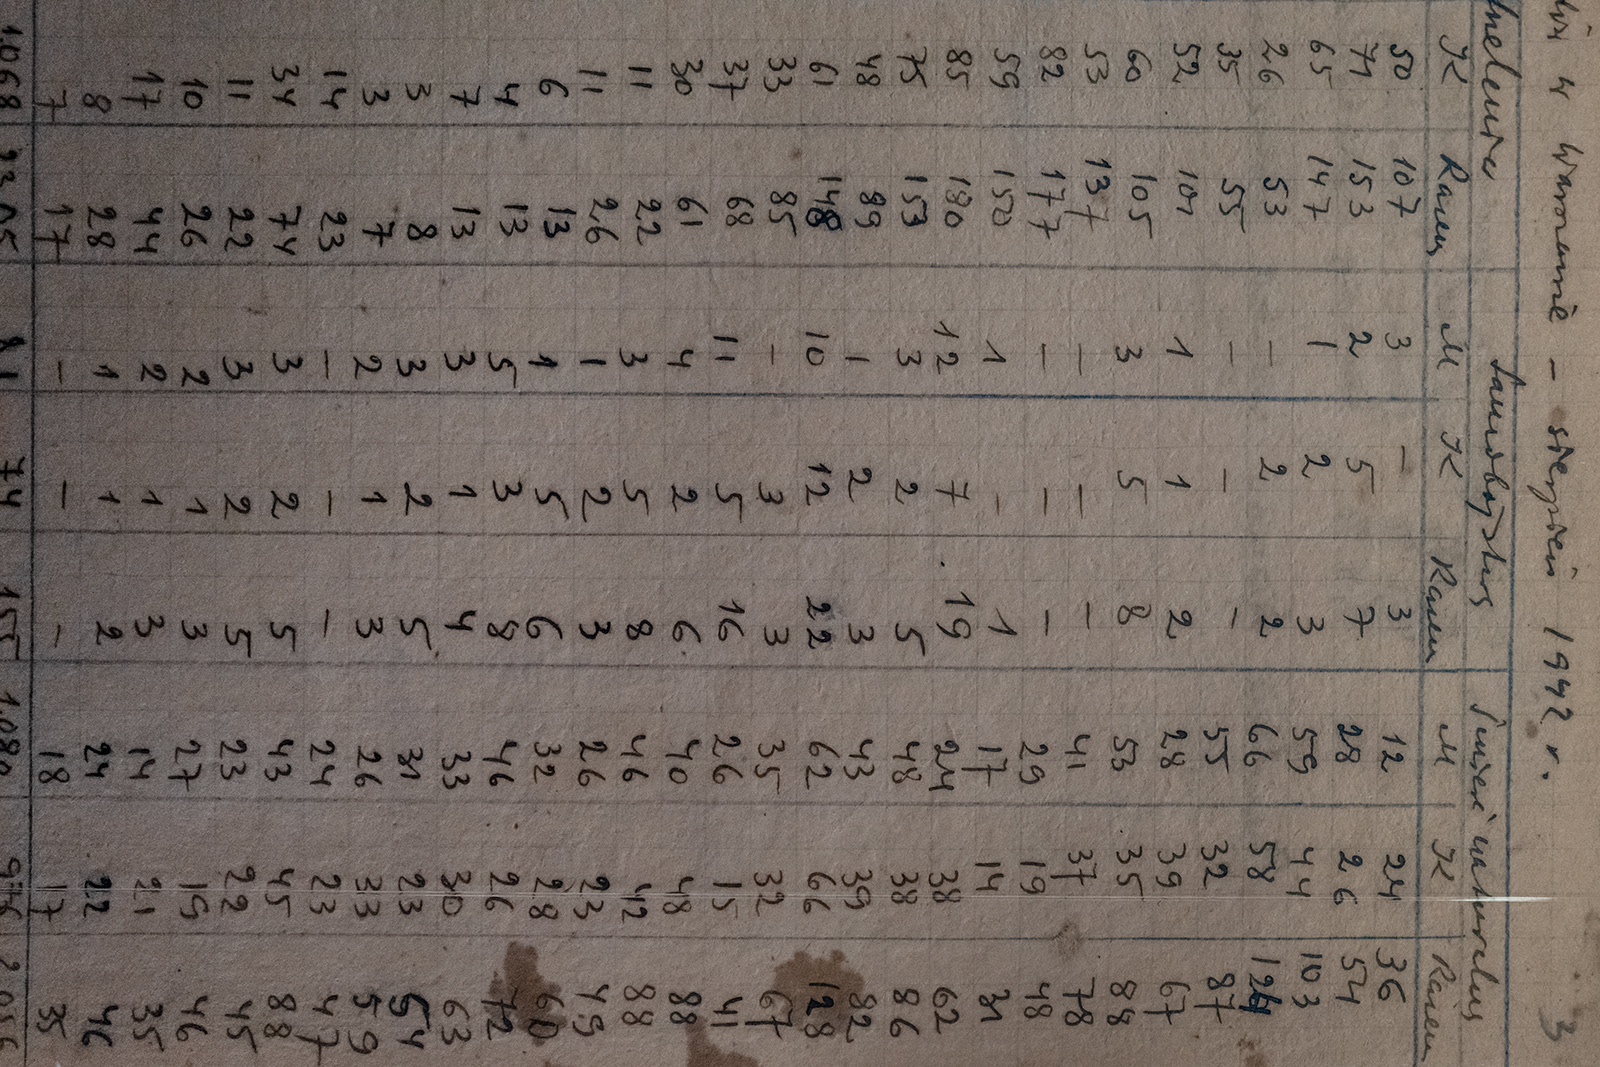 w Warszawie – sierpień 1942 r.
3
Samobójstwa Śmierć naturalna
K Razem M K Razem M K Razem
50 107 3 – 3 12 24 36
71 153 2 5 7 28 26 54
65 147 1 2 3 59 44 103
26 53 – 2 2 66 58 124
35 55 – – – 55 32 87
52 101 1 1 2 28 39 67
60 105 3 5 8 53 35 88
53 137 – – – 41 37 78
82 177 – – – 29 19 48
59 150 1 – 1 17 14 31
85 180 12 7 19 24 38 62
75 153 3 2 5 48 38 86
48 89 1 2 3 43 39 82
61 148 10 12 22 62 66 128
33 85 – 3 3 35 32 67
37 68 11 5 16 26 15 41
30 61 4 2 6 40 48 88
11 22 3 5 8 46 42 88
11 26 1 2 3 26 23 49
6 13 1 5 6 32 28 60
4 13 5 3 8 46 26 72
7 13 3 1 4 33 30 63
3 8 3 2 5 31 23 54
3 7 2 1 3 26 33 59
14 23 – – – 24 23 47
34 74 3 2 5 43 45 88
11 22 3 2 5 23 22 45
10 26 2 1 3 27 19 46
17 44 2 1 3 14 21 35
8 28 1 1 2 24 22 46
7 17 – – – 18 17 35
1.068 81 74 155 1.080 976 2.056